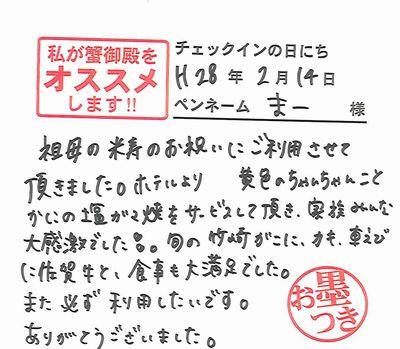 私が蟹御殿を
オススメ
します!!
チェックインの日にち
H28年2月14日
ペンネーム まー 様
祖母の米寿のお祝いにご利用させて
頂きました。ホテルより 黄色のちゃんちゃんこと
かにの塩がま焼をサービスして頂き、家族みんな
大感激でした!!。旬の竹崎がに、カキ、車えび
に佐賀牛と、食事も大満足でした。
また必ず利用したいです。
ありがとうございました。
お墨つき